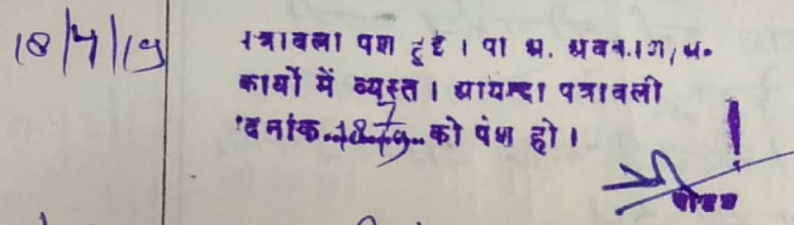 18/4/19
पत्रावली पेश हुई । पी अ. अवकाश/अ.
कार्यो में व्यस्त । आयन्दा पत्रावली
दिनांक..18/7/19..को पेश हो ।